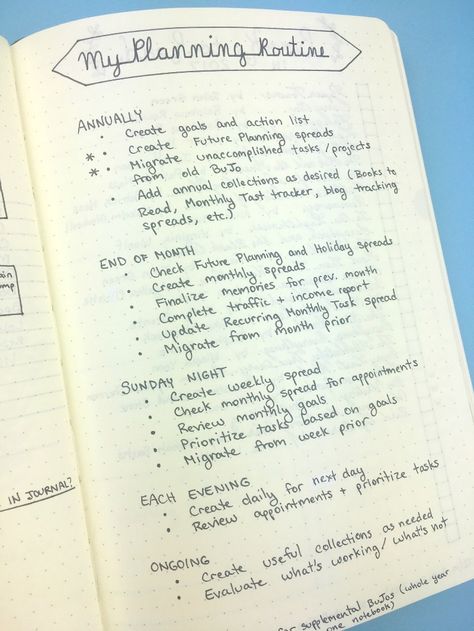 My Planning Routine
ANNUALLY
• Create goals and action list
* • Create Future Planning spreads
* • Migrate unaccomplished tasks/projects
from old BuJo
• Add annual collections as desired (Books to
Read, Monthly Tast tracker, blog tracking
spreads, etc.)
END OF MONTH
• Check Future Planning and Holiday spreads
• Create monthly spreads
• Finalize memories for prev. month
• Complete traffic + income report
• Update Recurring Monthly Task spread
• Migrate from month prior
SUNDAY NIGHT
• Create weekly spread
• Check monthly spread for appointments
• Review monthly goals
• Prioritize tasks based on goals
• Migrate from week prior
EACH EVENING
• Create daily for next day
• Review appointments + prioritize tasks
ONGOING
• Create useful collections as needed
• Evaluate what's working/what's not
for supplemental BuJos (whole year
one notebook)
IN JOURNAL?